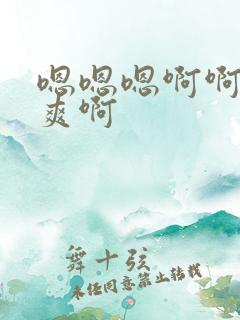 嗯嗯嗯啊啊
爽啊
舞十弦
未经同意禁止转载